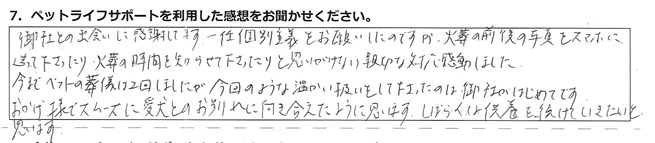 7. ペットライフサポートを利用した感想をお聞かせください。
御社との出会いに感謝してます。一任個別火葬をお願いしたのですが、火葬の前後の写真をスマホに
送って下さったり、火葬の時間を知らせて下さったりと思いがけない親切な対応に感動しました。
今までペットの葬儀は2回しましたが今回のような温かい扱いをして下さったのは御社がはじめてです。
おかげ様でスムーズに愛犬とのお別れに向き合えたように思います。しばらくは供養を続けていきたいと
思います。